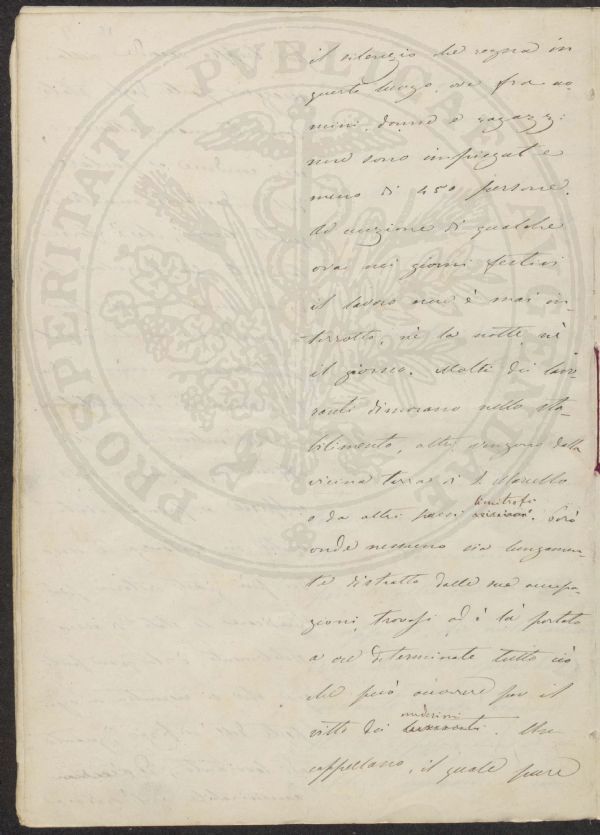 PROSPERITATI PVBLICAE AVGENDAE
il silenzio che regna in
questo luogo, ove fra uo-
mini, donne e ragazzi
non sono impiegate
meno di 450 persone.
Ad eccezione di qualche
ora nei giorni festivi
il lavoro non è mai in-
terrotto, nè la notte nè
il giorno. Molti dei lavo-
ranti dimorano nello sta-
bilimento, altri vengono dalla
vicina terra di S. Marcello
limitrofi
o da altri paesi vicini. Però
onde nessuno sia lungamen-
te distratto dalle sue occupa-
zioni, trovasi ed è là portato
a ore determinate tutto ciò
che può occorrere per il
medesimi
vitto dei lavoranti. Un
cappellano, il quale pure